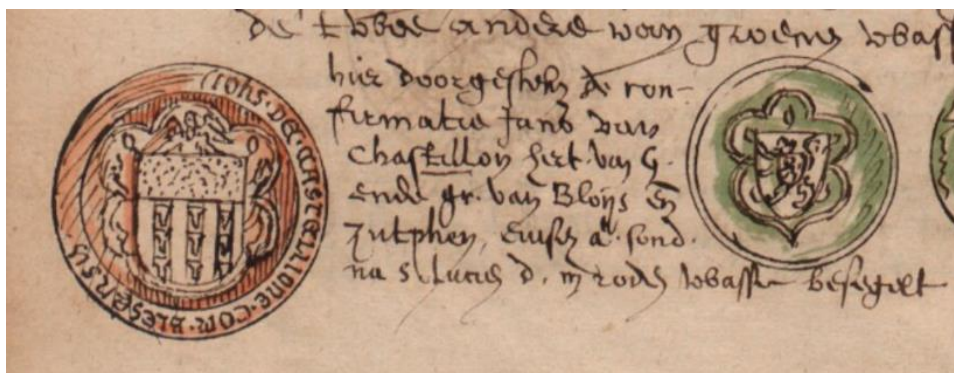 de twee andere van groenen wbass
hier doorgesteken de con-
firmatie Jans van
Chastillon hert. van G.
ende gr. van Bloijs en
Zutphen, a°. sond.
na S. Lucie d. in roden wasse besegelt
iohs. de. castellione. com. blesensis